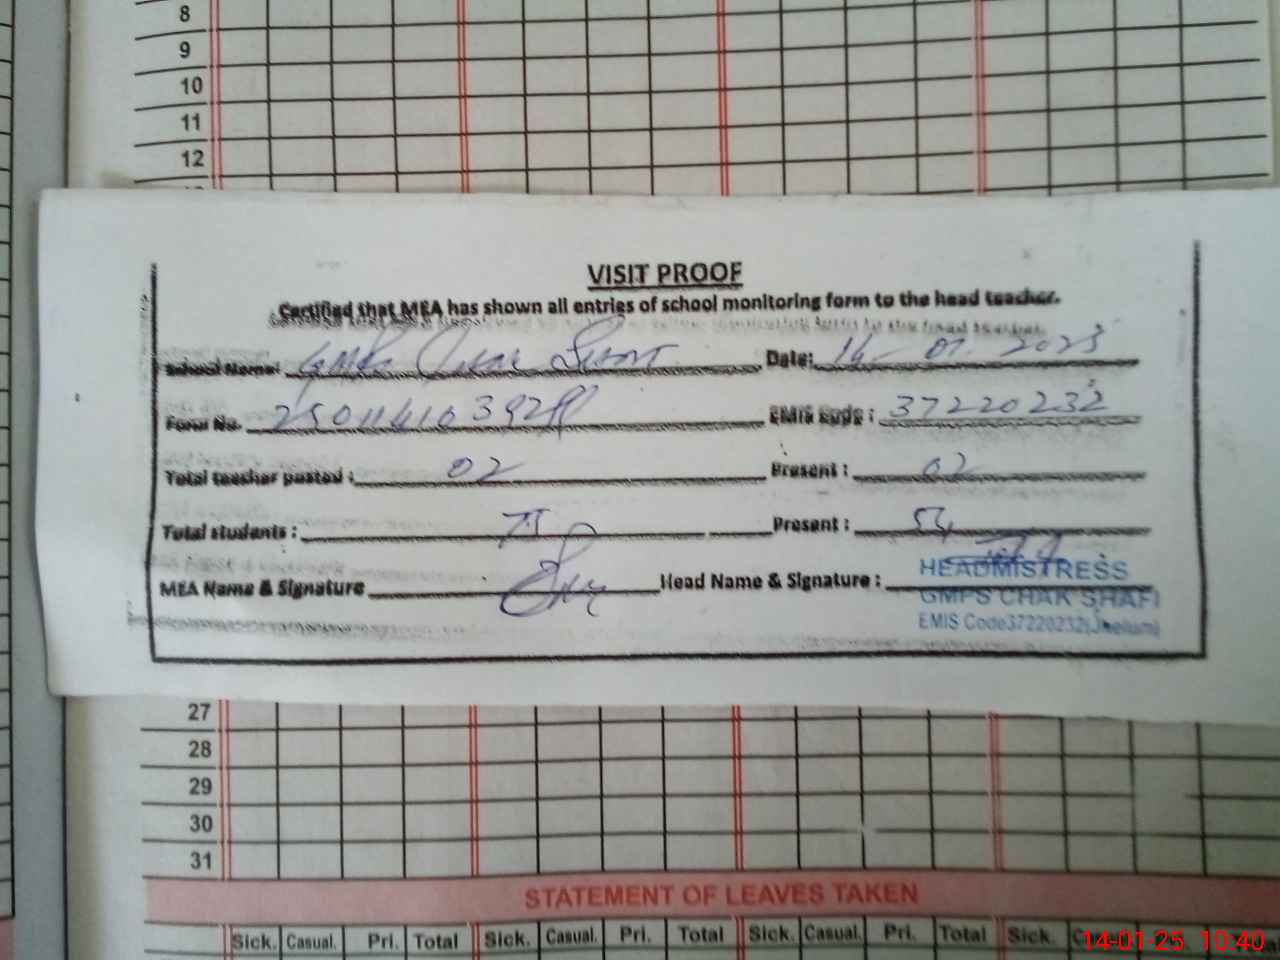 8
9
10
11
12
VISIT PROOF
Certified that MEA has shown all entries of school monitoring form to the head teacher.
School Name: GMPS Chak Date: 14-01-2025
Form No. 2501141039 EMIS Code : 37220232
Total teacher posted : 02 Present : 02
Total students : Present : 54
MEA Name & Signature Head Name & Signature :
HEADMISTRESS
GMPS CHAK SHAFI
EMIS Code37220232(Jhelum)
27
28
29
30
31
STATEMENT OF LEAVES TAKEN
Sick. Casual. Pri. Total Sick. Casual. Pri. Total Sick. Casual. Pri. Total Sick.
14-01-25 10:40